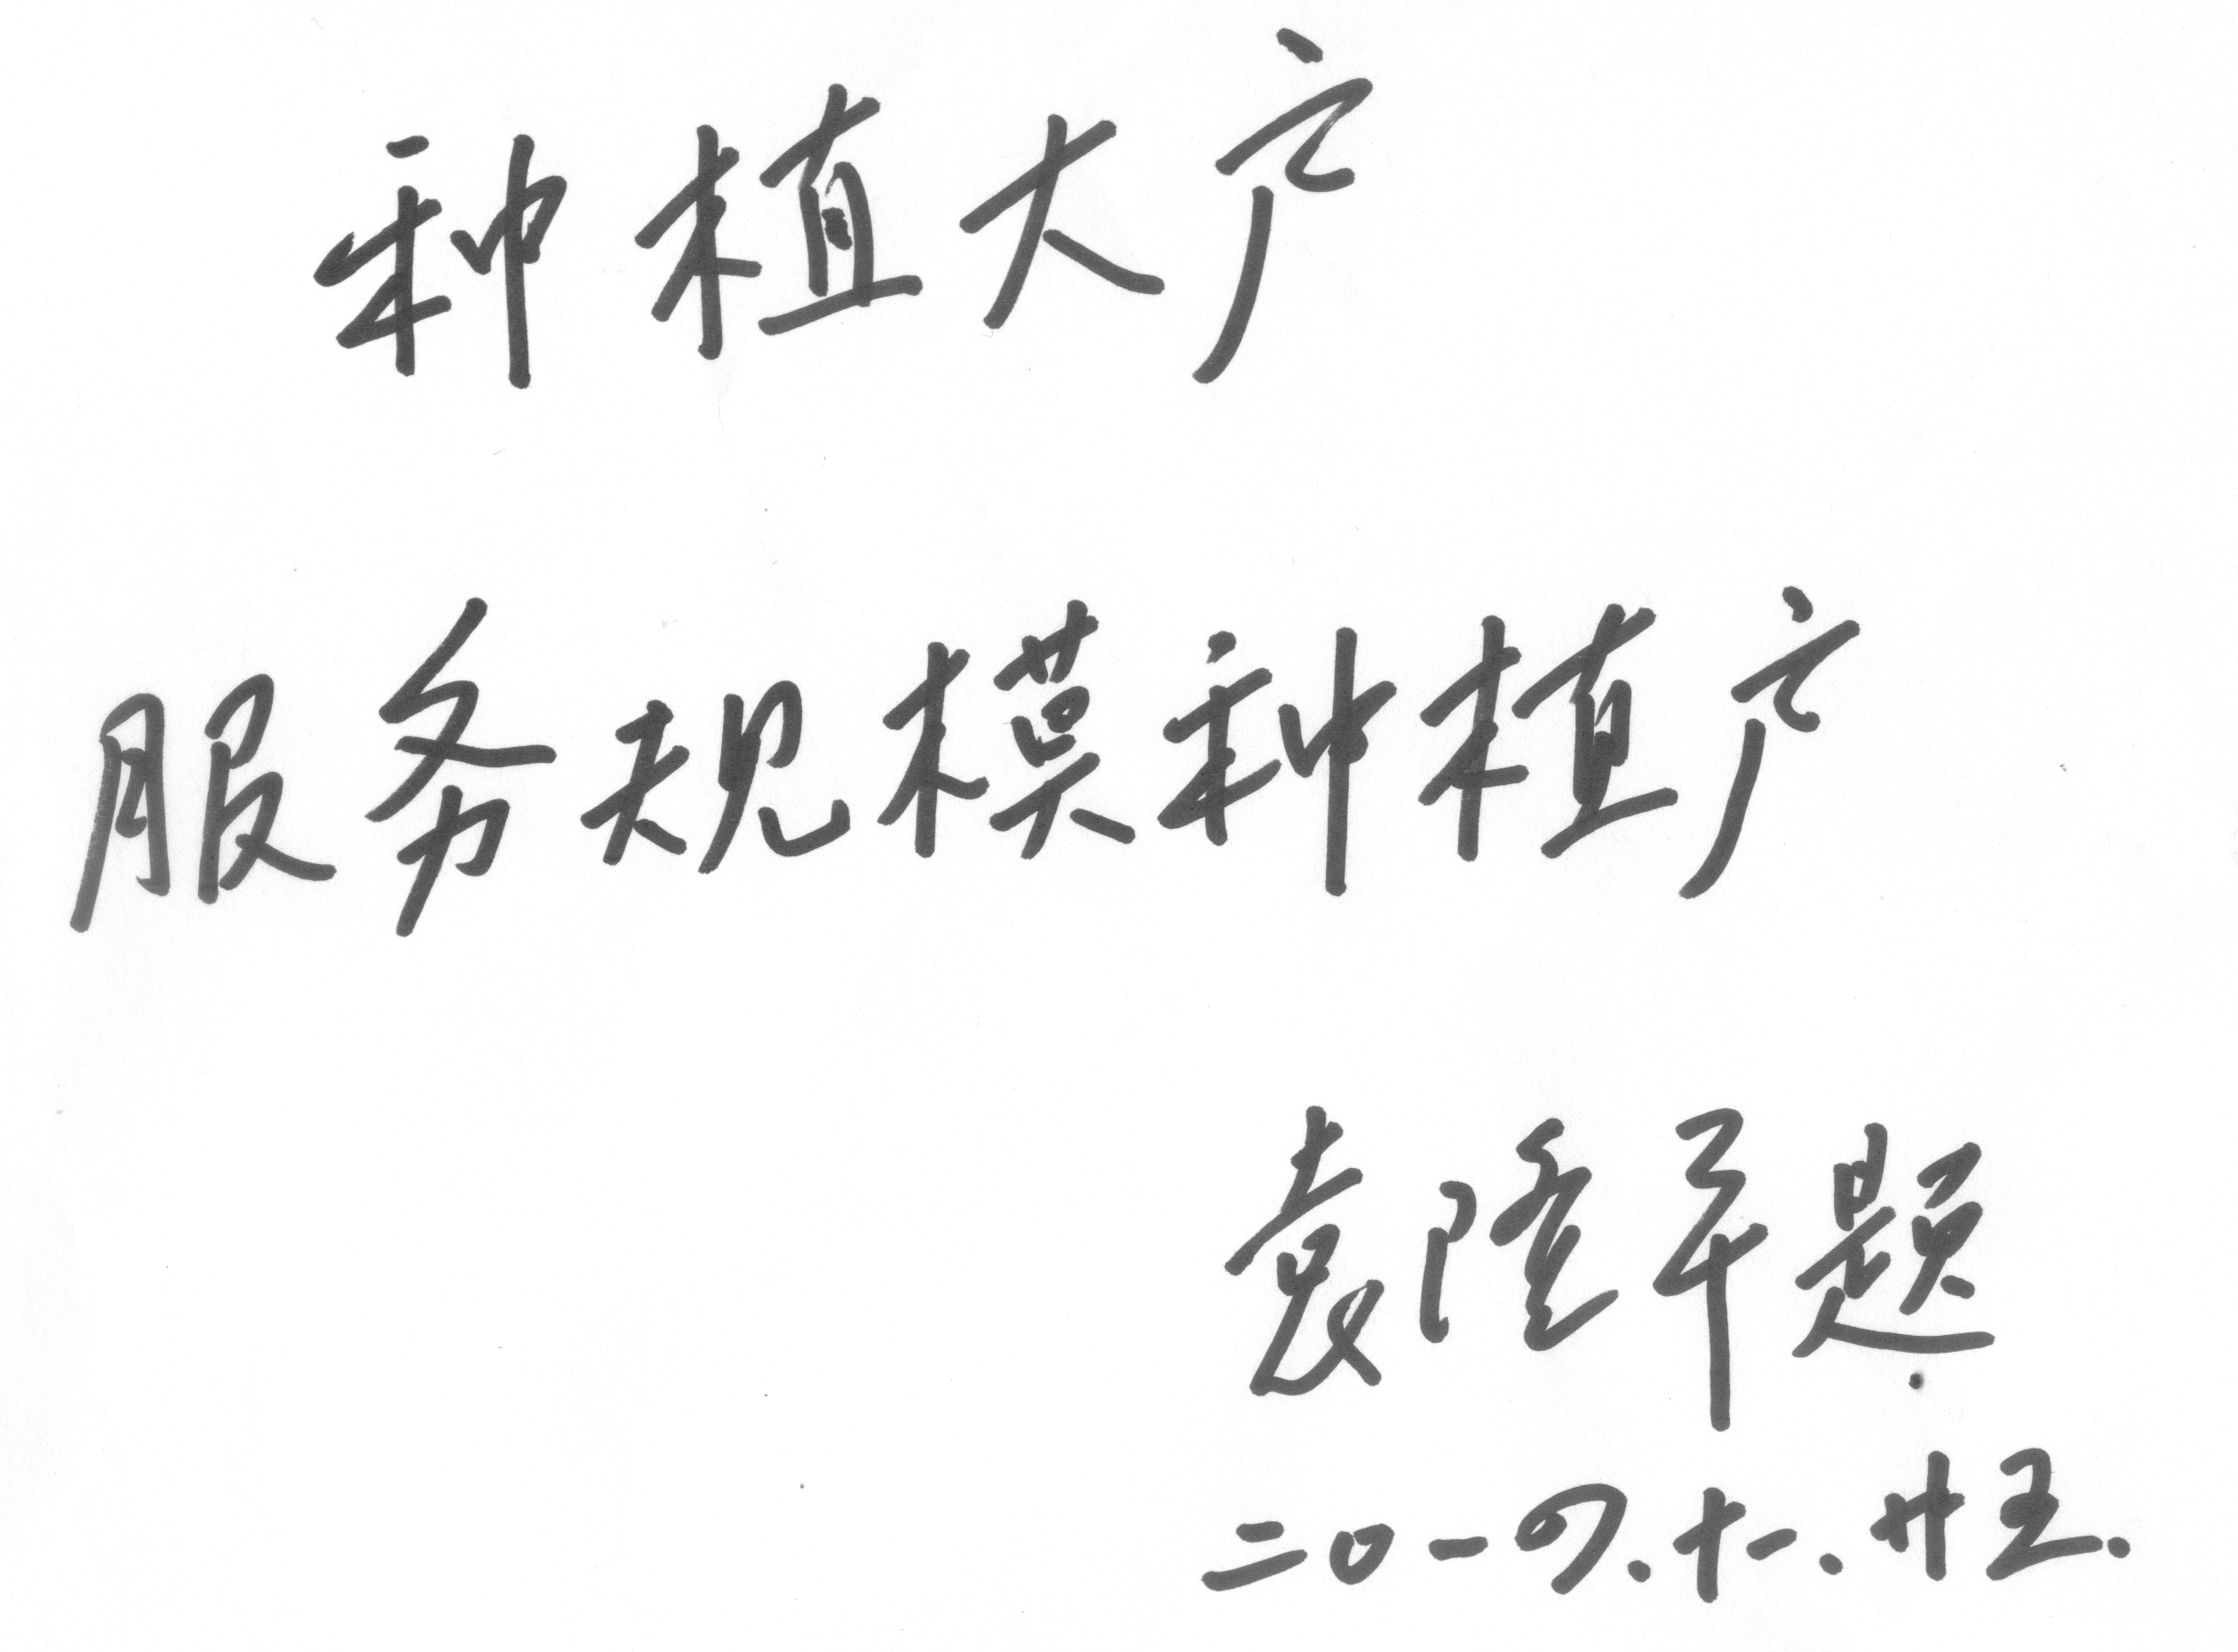 种植大户
服务规模种植户
袁隆平题
二〇一四.十一.廿五.